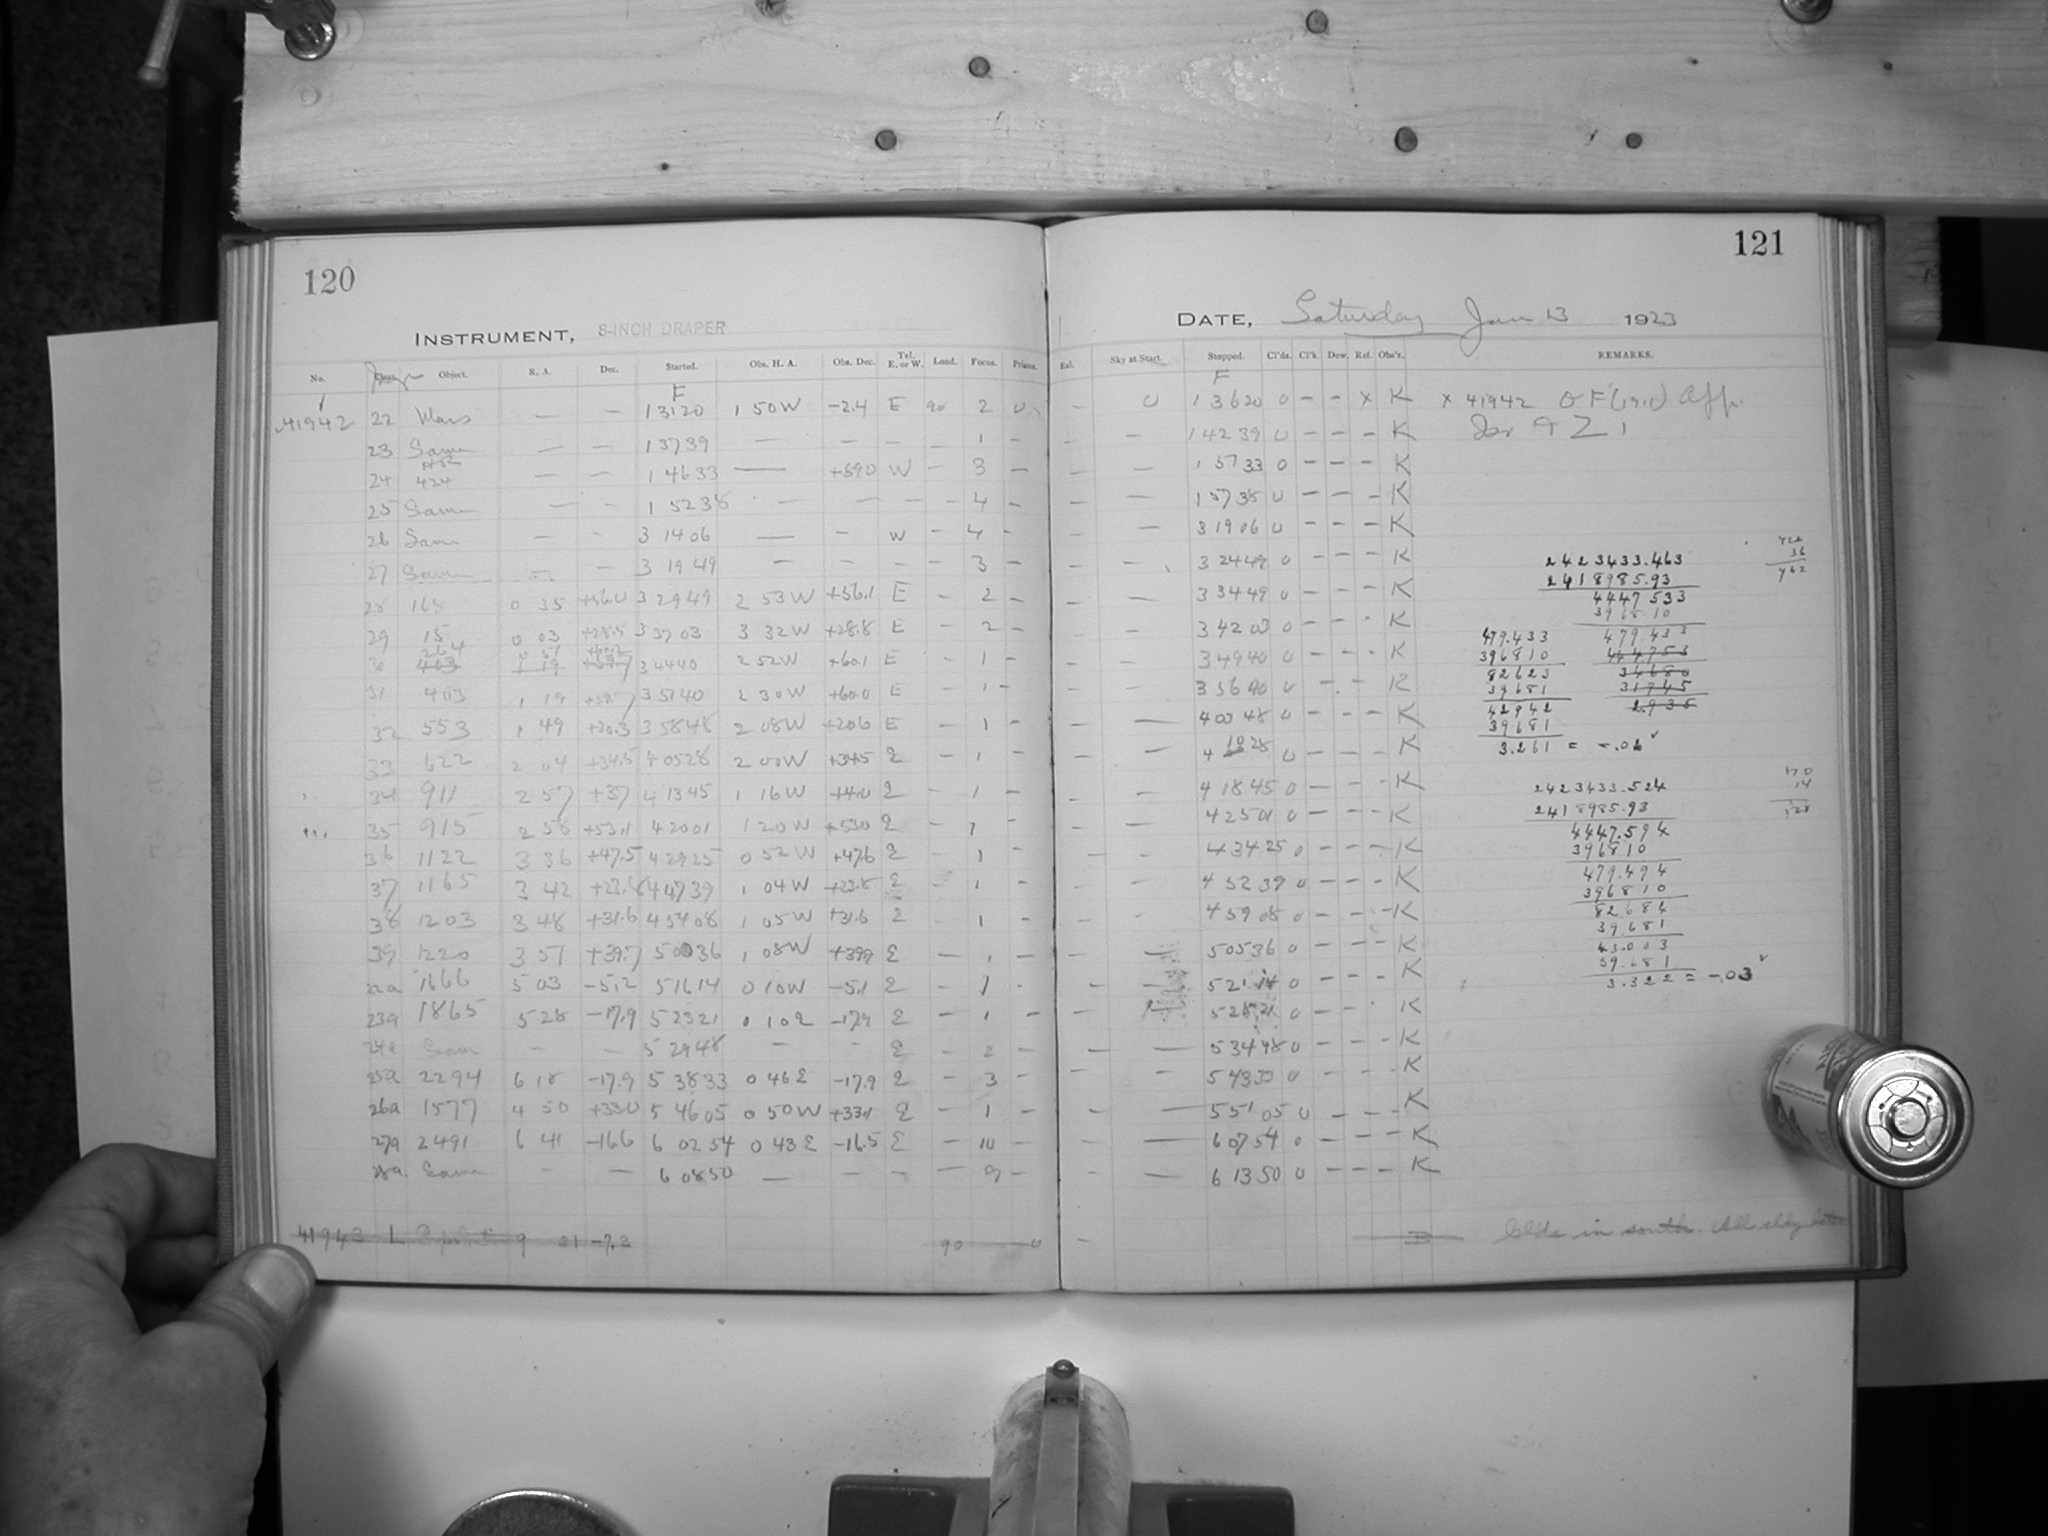 120
INSTRUMENT, 8-INCH DRAPER
No. Object. R. A. Dec. Started. Obs. H. A. Obs. Dec. Tel. E. or W. Load. Focus. Prisms.
F
41942 22 Mars — — 1 31 20 1 50 W −2.4 E 90 2 0
23 Same — — 1 37 39 — — — — 1 —
24 424 — — 1 46 33 — +59.0 W — 3 —
25 Same — — 1 52 38 — — — — 4 —
26 Same — — 3 14 06 — — W — 4 —
27 Same — — 3 19 49 — — — — 3 —
28 168 0 35 +56.0 3 29 49 2 53 W +56.1 E — 2 —
29 15 0 03 +28.5 3 37 03 3 32 W +28.8 E — 2 —
30 264 403 1 19 3 44 40 2 52 W +60.1 E — 1 —
31 403 1 19 +59.7 3 51 40 2 30 W +60.0 E — 1 —
32 553 1 49 +20.3 3 58 48 2 08 W +20.6 E — 1 —
33 622 2 04 +34.5 4 05 28 2 00 W +34.5 E — 1 —
34 911 2 57 +3.7 4 13 45 1 16 W +4.0 E — 1 —
35 915 2 58 +53.1 4 20 01 1 20 W +53.0 E — 1 —
36 1122 3 36 +47.5 4 29 25 0 52 W +47.6 E — 1 —
37 1165 3 42 +23.8 4 47 39 1 04 W +23.8 E — 1 —
38 1203 3 48 +31.6 4 54 08 1 05 W +31.6 E — 1 —
39 1220 3 51 +39.7 5 00 36 1 08 W +39.9 E — 1 —
22a 1666 5 03 −5.2 5 16 14 0 10 W −5.1 E — 1 —
23a 1865 5 28 −17.9 5 23 21 0 10 E −17.9 E — 1 —
24a Same — — 5 29 48 — — E — 2 —
25a 2294 6 18 −17.9 5 38 33 0 46 E −17.9 E — 3 —
26a 1577 4 50 +33.0 5 46 05 0 50 W +33.1 E — 1 —
27a 2491 6 41 −16.6 6 02 54 0 43 E −16.5 E — 10 —
28a Same — — 6 08 50 — — — — 9 —
41943 L 9 31 −7.3 90 0
121
DATE, Saturday Jan 13 1923
Exl. Sky at Start. Stopped. Cl'ds. Cl'k. Dew. Ref. Obs'r. REMARKS.
F
— 0 1 36 20 0 — — x K x 41942 O F (19.1) Aff.
— — 1 42 39 0 — — — K for A Z 1
— — 1 57 33 0 — — — K
— — 1 57 38 0 — — — K
— — 3 19 06 0 — — — K
— — 3 24 49 0 — — — K
— — 3 34 49 0 — — — K
— — 3 42 03 0 — — — K
— — 3 49 40 0 — — — K
— — 3 56 40 0 — — — K
— — 4 03 48 0 — — — K
— — 4 10 28 0 — — — K
— — 4 18 45 0 — — — K
— — 4 25 01 0 — — — K
— — 4 34 25 0 — — — K
— — 4 52 39 0 — — — K
— — 4 59 08 0 — — — K
— — 5 05 36 0 — — — K
— — 5 21 14 0 — — — K
— — 5 28 21 0 — — — K
— — 5 34 48 0 — — — K
— — 5 43 33 0 — — — K
— — 5 51 05 0 — — — K
— — 6 07 54 0 — — — K
— — 6 13 50 0 — — — K
Clds in south. All cldy
2423433.463
2418985.93
4447533
3968 10
479.433
479.433
396810
82623
39681
42942
39681
3.261 = −.06
444753
34680
31745
2.935
2423433.524
2418985.93
4447.594
396810
479.494
396810
82.684
39.681
43.003
39.681
3.322 = −.03